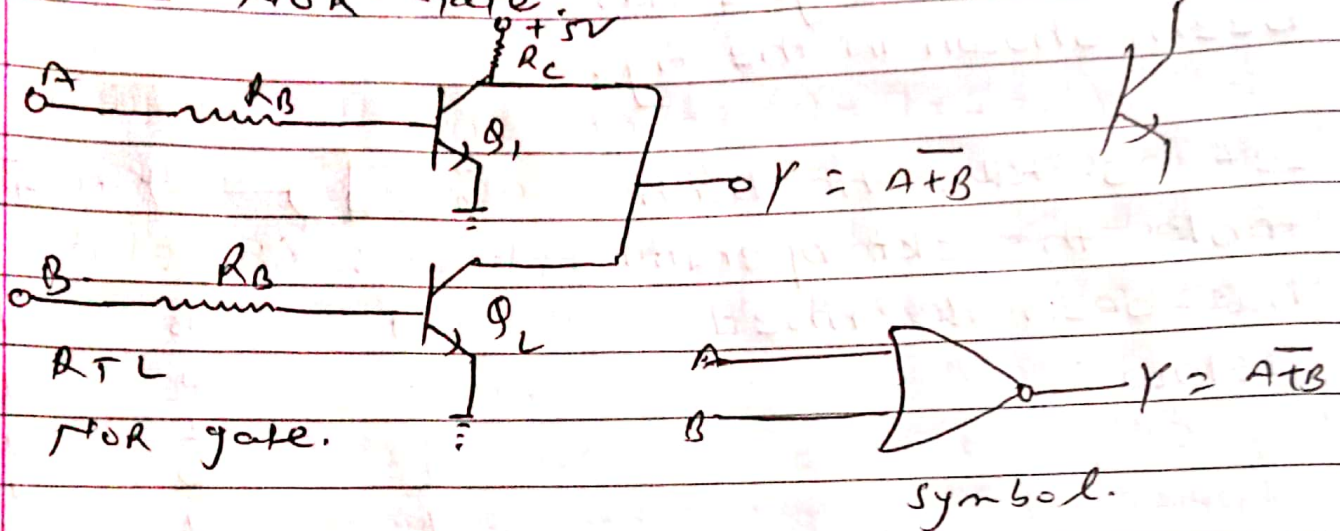 NOR gate.
+5V
RC
A RB
Q1
Y = A+B̅
B RB
Q2
RTL
NOR gate.
A
B
Y = A+B̅
symbol.